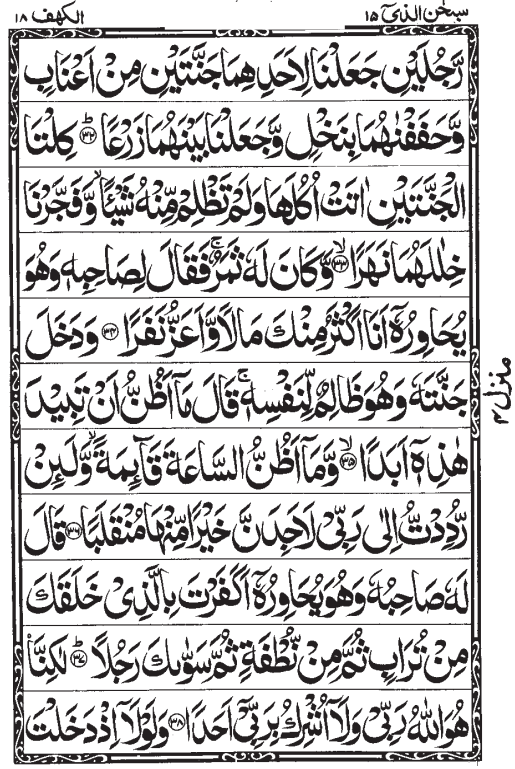 سبحٰن الذیٓ ۱۵
الكهف ۱۸
رَّجُلَيْنِ جَعَلْنَا لِاَحَدِهِمَا جَنَّتَيْنِ مِنْ اَعْنَابٍ
وَّحَفَفْنٰهُمَا بِنَخْلٍ وَّجَعَلْنَا بَيْنَهُمَا زَرْعًا ؕ ﴿۳۲﴾ كِلْتَا
الْجَنَّتَيْنِ اٰتَتْ اُكُلَهَا وَلَمْ تَظْلِمْ مِّنْهُ شَيْـًٔا ۙ وَّفَجَّرْنَا
خِلٰلَهُمَا نَهَرًا ۙ ﴿۳۳﴾ وَّكَانَ لَهٗ ثَمَرٌ ۚ فَقَالَ لِصَاحِبِهٖ وَهُوَ
يُحَاوِرُهٗۤ اَنَا اَكْثَرُ مِنْكَ مَالًا وَّاَعَزُّ نَفَرًا ﴿۳۴﴾ وَدَخَلَ
جَنَّتَهٗ وَهُوَ ظَالِمٌ لِّنَفْسِهٖ ۚ قَالَ مَاۤ اَظُنُّ اَنْ تَبِيْدَ
هٰذِهٖۤ اَبَدًا ۙ ﴿۳۵﴾ وَّمَاۤ اَظُنُّ السَّاعَةَ قَآئِمَةً ۙ وَّلَئِنْ
رُّدِدْتُّ اِلٰى رَبِّيْ لَاَجِدَنَّ خَيْرًا مِّنْهَا مُنْقَلَبًا ﴿۳۶﴾ قَالَ
لَهٗ صَاحِبُهٗ وَهُوَ يُحَاوِرُهٗۤ اَكَفَرْتَ بِالَّذِيْ خَلَقَكَ
مِنْ تُرَابٍ ثُمَّ مِنْ نُّطْفَةٍ ثُمَّ سَوّٰىكَ رَجُلًا ؕ ﴿۳۷﴾ لٰكِنَّا۠
هُوَ اللّٰهُ رَبِّيْ وَلَاۤ اُشْرِكُ بِرَبِّيْۤ اَحَدًا ﴿۳۸﴾ وَلَوْلَاۤ اِذْ دَخَلْتَ
منزل ۴